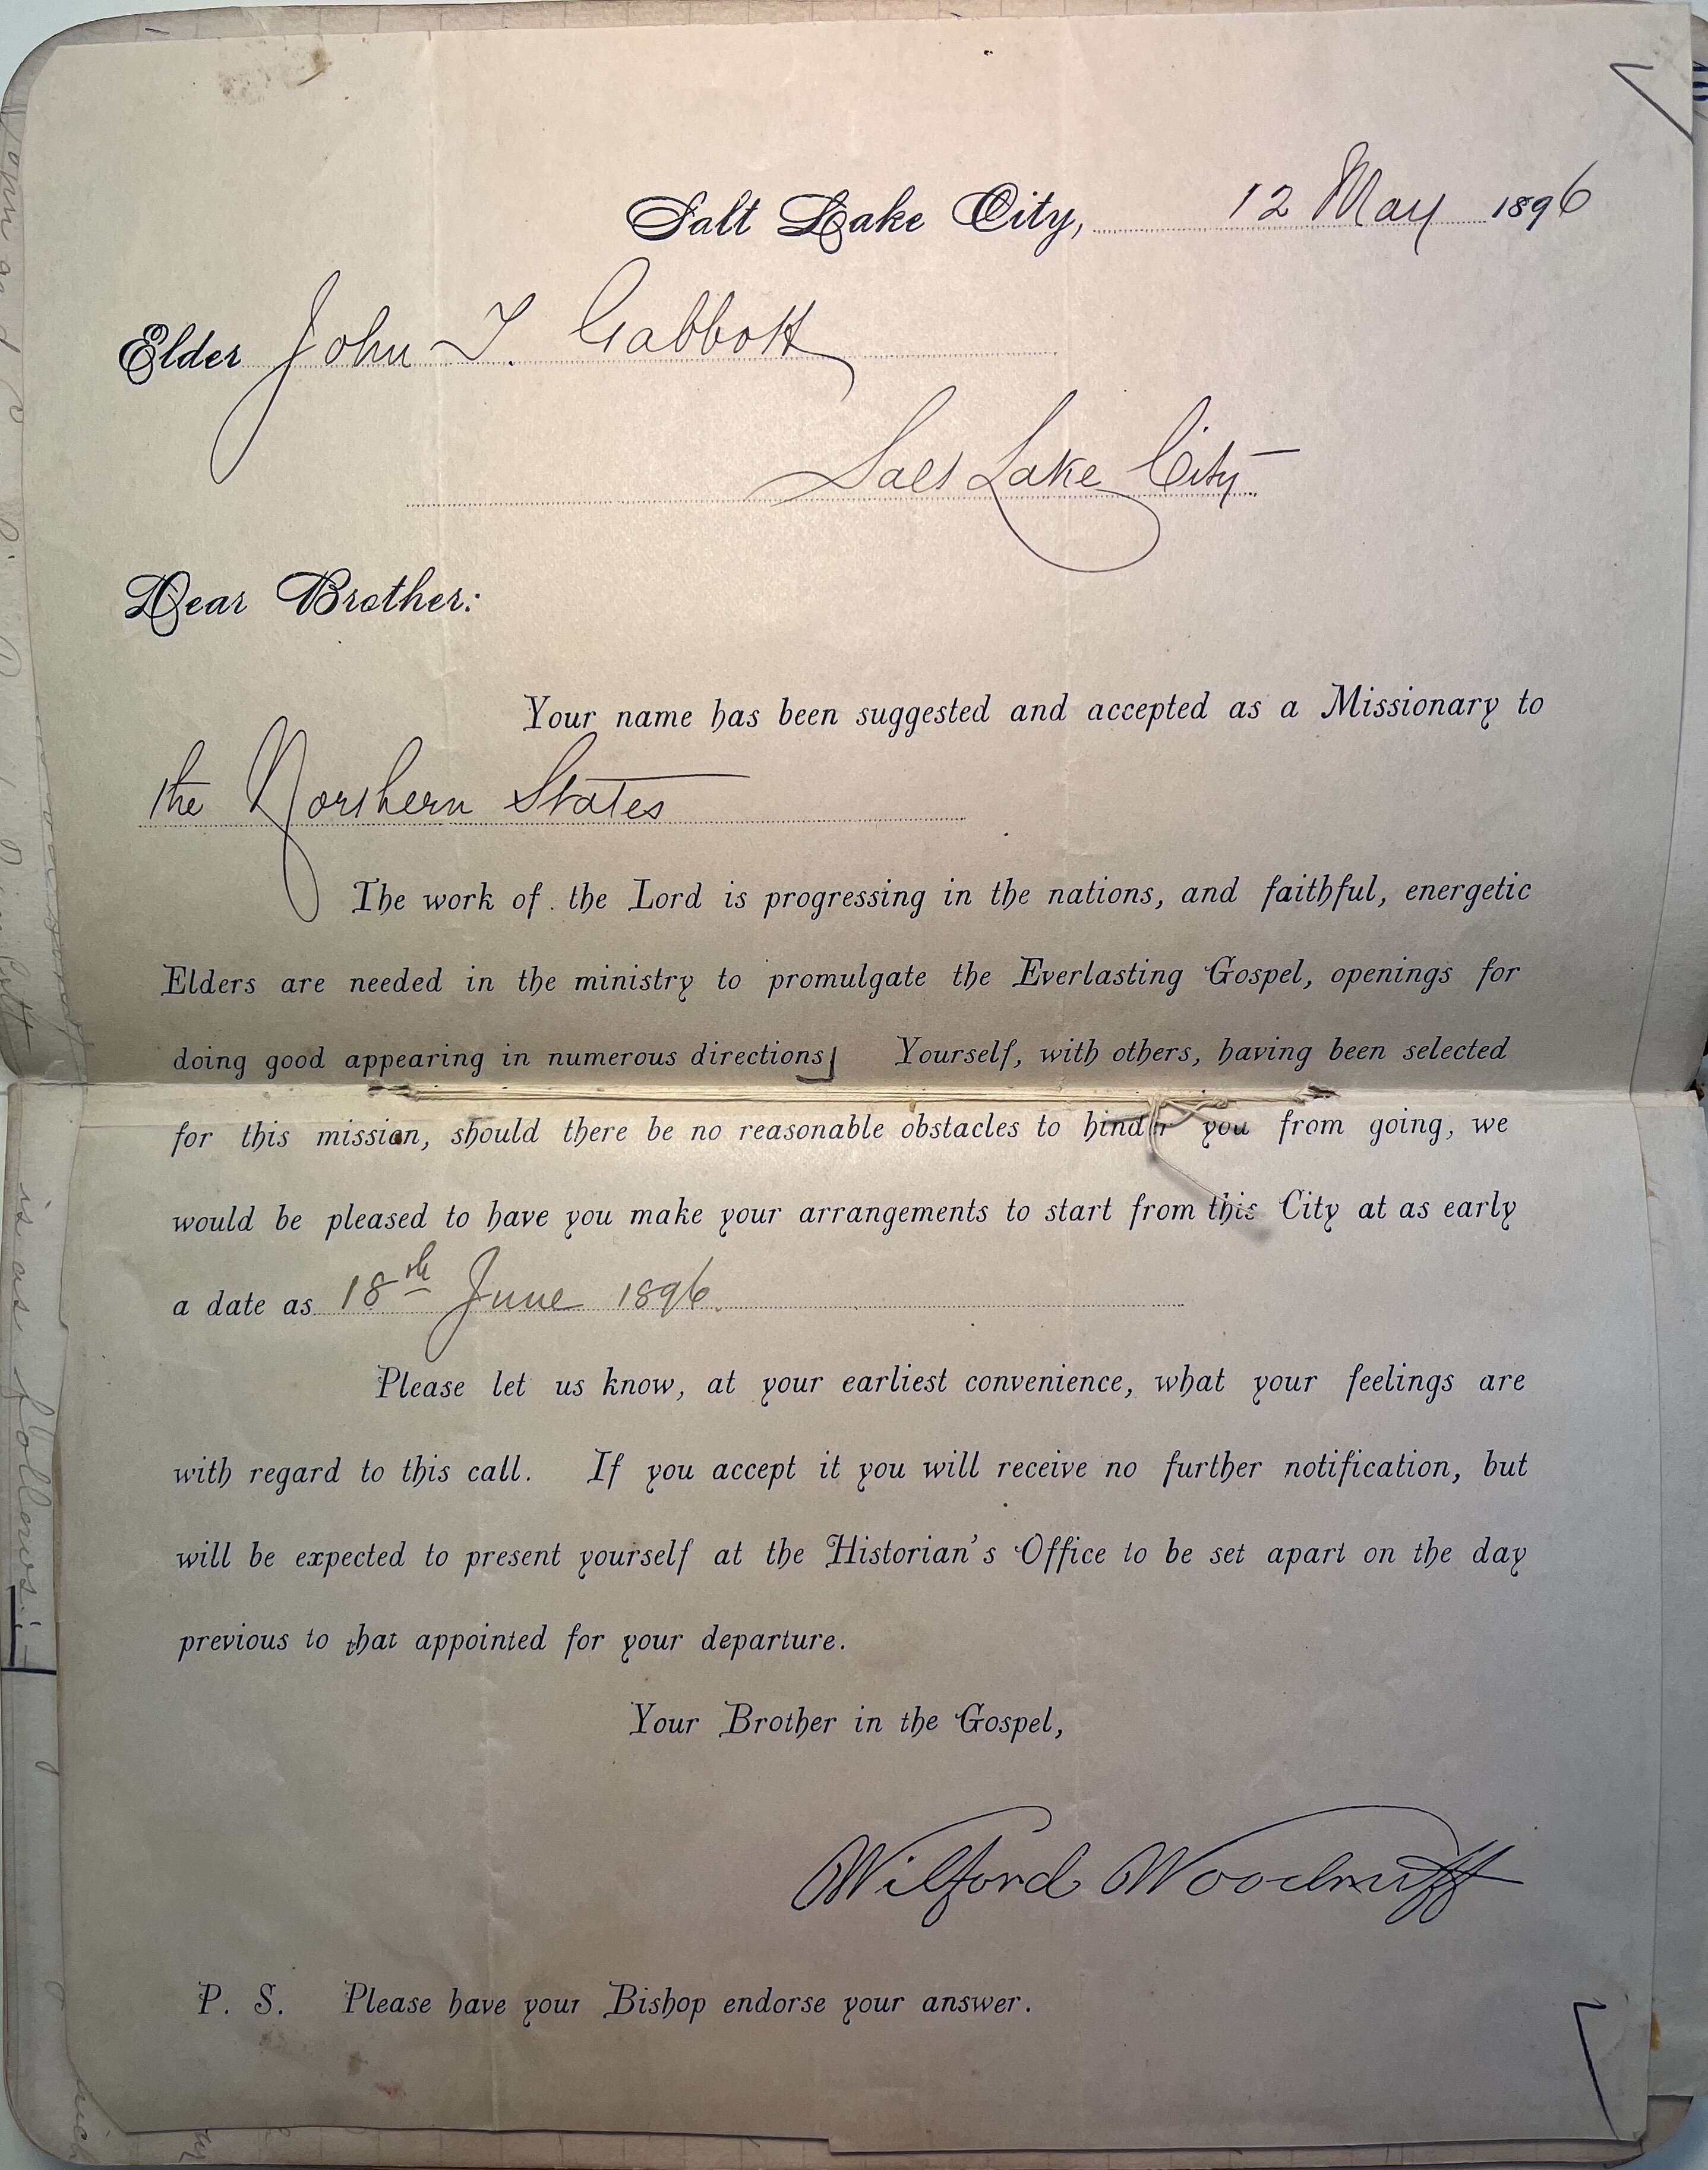 Salt Lake City, 12 May 1896
Elder John T. Gabbott
Salt Lake City
Dear Brother:
Your name has been suggested and accepted as a Missionary to
the Northern States
The work of the Lord is progressing in the nations, and faithful, energetic
Elders are needed in the ministry to promulgate the Everlasting Gospel, openings for
doing good appearing in numerous directions. Yourself, with others, having been selected
for this mission, should there be no reasonable obstacles to hinder you from going, we
would be pleased to have you make your arrangements to start from this City at as early
a date as 18th June 1896.
Please let us know, at your earliest convenience, what your feelings are
with regard to this call. If you accept it you will receive no further notification, but
will be expected to present yourself at the Historian's Office to be set apart on the day
previous to that appointed for your departure.
Your Brother in the Gospel,
Wilford Woodruff
P. S. Please have your Bishop endorse your answer.
is as follows:-